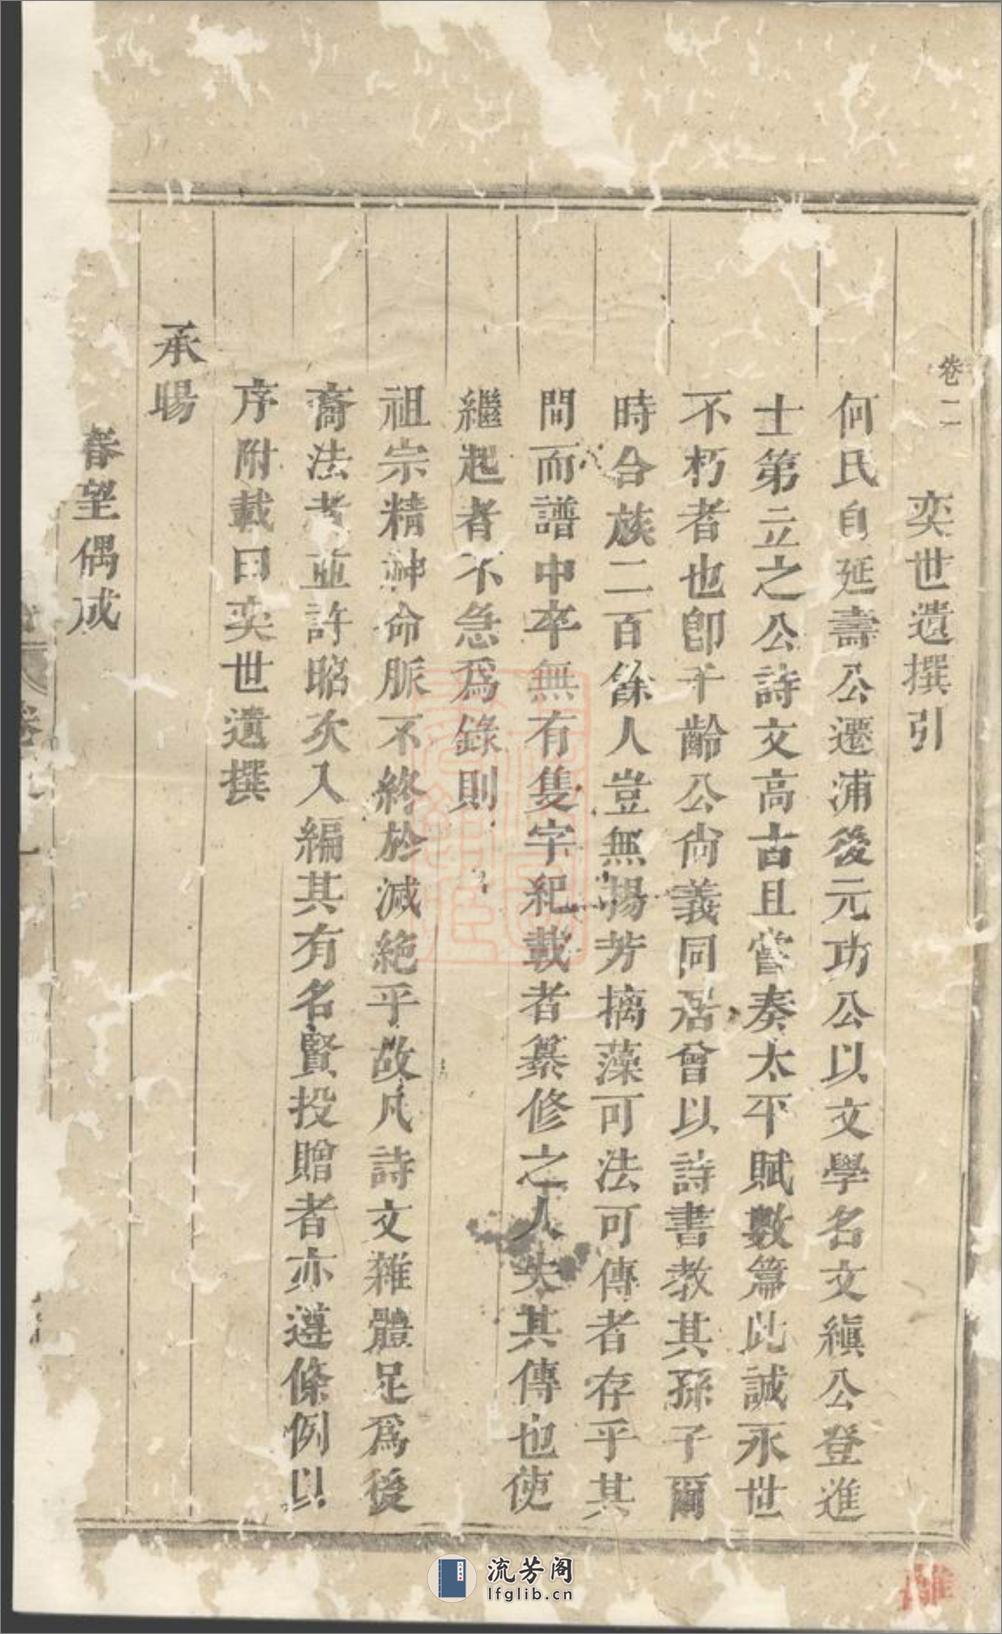 卷二
奕世遺撰引
何氏自延壽公遷浦後元功公以文學名文縝公登進
士第立之公詩文高古且嘗奏太平賦數篇此誠永世
不朽者也卽千齡公尙義同居曾以詩書教其孫子爾
時合族二百餘人豈無揚芳摛藻可法可傳者存乎其
間而譜中卒無有隻字紀載者纂修之人失其傳也使
繼起者不急爲錄則
祖宗精神命脈不終於減絶乎故凡詩文雜體足爲後
裔法者並許昭次入編其有名賢投贈者亦遵條例以
序附載曰奕世遺撰
承暘
春望偶成
卷
流芳阁
lfglib.cn